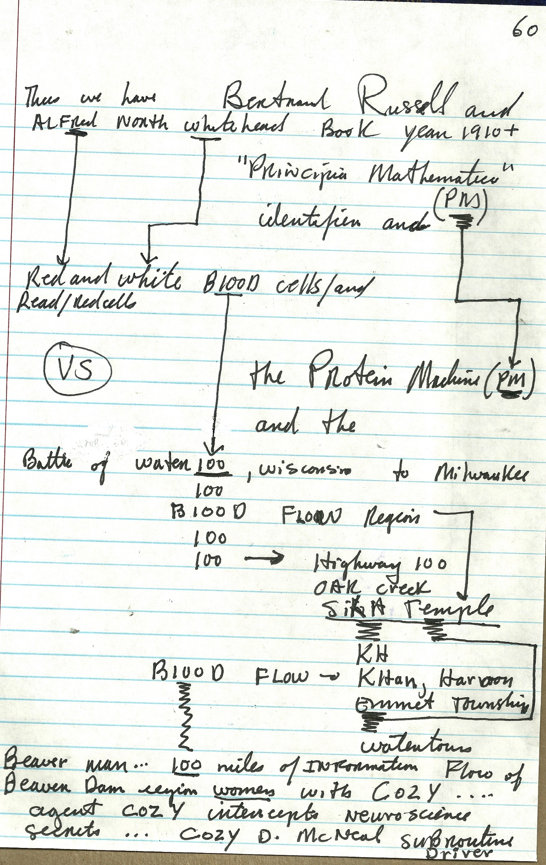 60
Thus we have Bertrand Russell and
ALFred NORTH whitehead Book year 1910+
"Principia Mathematica"
(PM)
identifier and
Red and white B100D cells/and
Read/Redcells
VS
the Protein Machine (PM)
and the
Battle of water 100, wisconsin to Milwaukee
100
B100D FLOW Region
100
100 → Highway 100
OAK creek
SikH Temple
KH
B100D FLOW – KHan, Haroon
Emmet Township
watertown
Beaver man... 100 miles of INFORMATION Flow of
Beaver Dam region women with COZY ....
agent COZY intercepts Neuroscience
secrets ... COZY D. McNeal subroutine
Driver